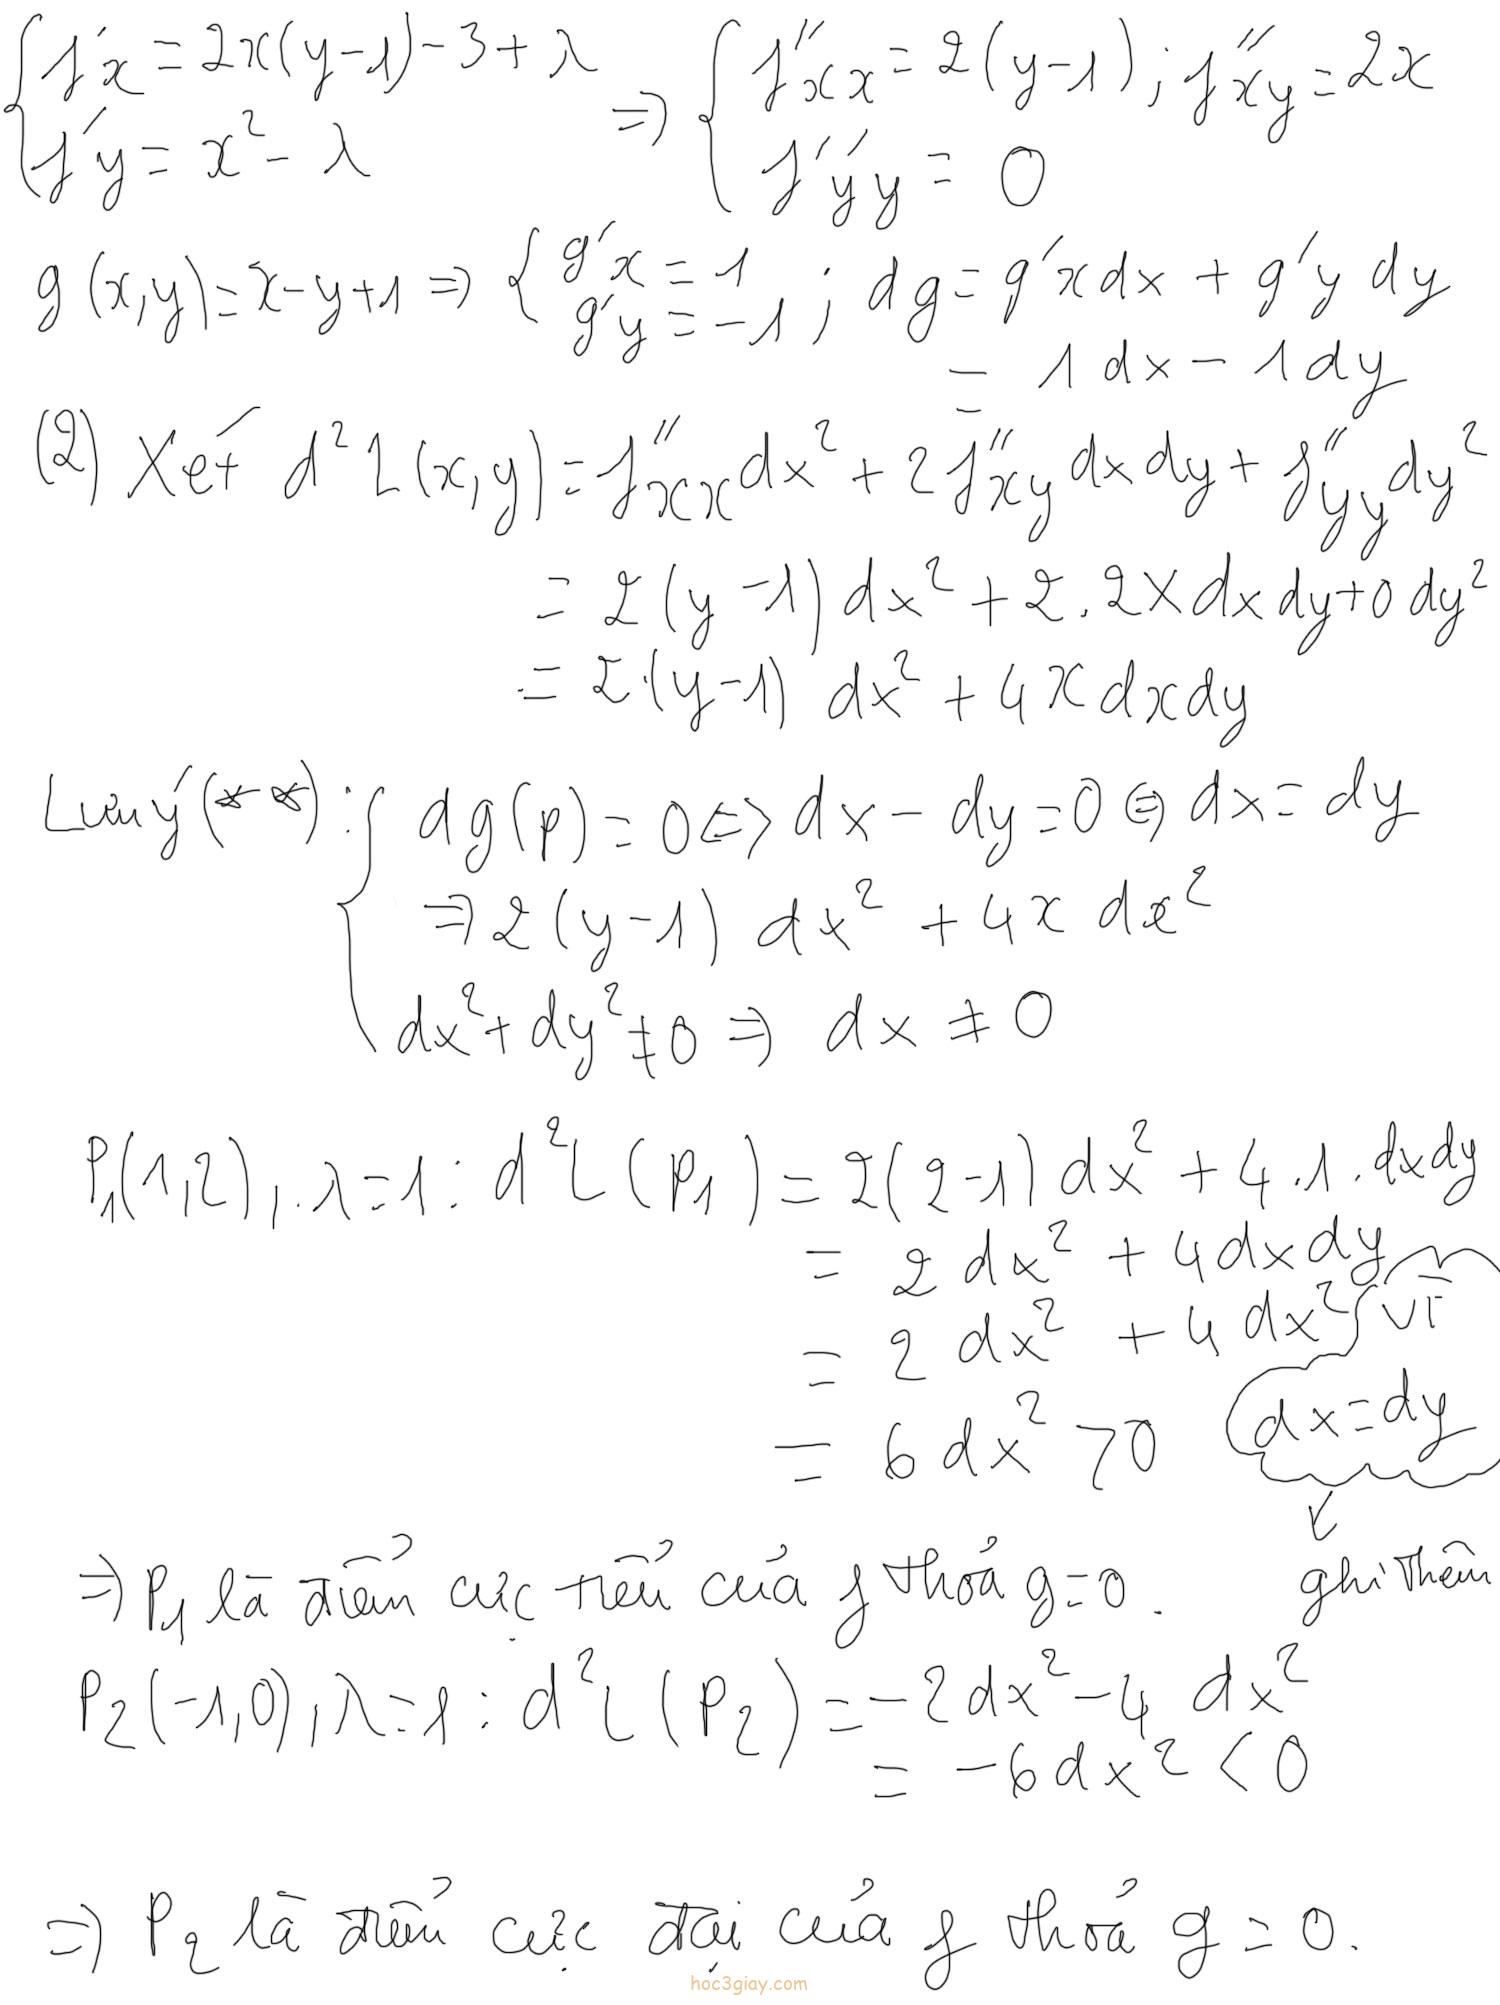 { f'x = 2x(y-1) - 3 + λ
f'y = x² - λ
⇒ { f''xx = 2(y-1) ; f''xy = 2x
f''yy = 0
g(x,y) = x-y+1 ⇒ { g'x = 1
g'y = -1 ; dg = g'x dx + g'y dy
= 1dx - 1dy
(2) Xét d²L(x,y) = f''xx dx² + 2f''xy dxdy + f''yy dy²
= 2(y-1) dx² + 2.2x dxdy + 0dy²
= 2.(y-1) dx² + 4x dxdy
Lưu ý (**) : { dg(p) = 0 ⇔ dx - dy = 0 ⇔ dx = dy
⇒ 2(y-1) dx² + 4x dx²
dx² + dy² ≠ 0 ⇒ dx ≠ 0
P1(1,2), λ=1 : d²L(P1) = 2(2-1) dx² + 4.1.dxdy
= 2dx² + 4dxdy
= 2dx² + 4dx² vì
= 6dx² >0 dx = dy
ghi thêm
⇒ P1 là điểm cực tiểu của f thoả g=0.
P2(-1,0), λ=1 : d²L(P2) = -2dx² - 4dx²
= -6dx² < 0
⇒ P2 là điểm cực đại của f thoả g = 0.
hoc3giay.com